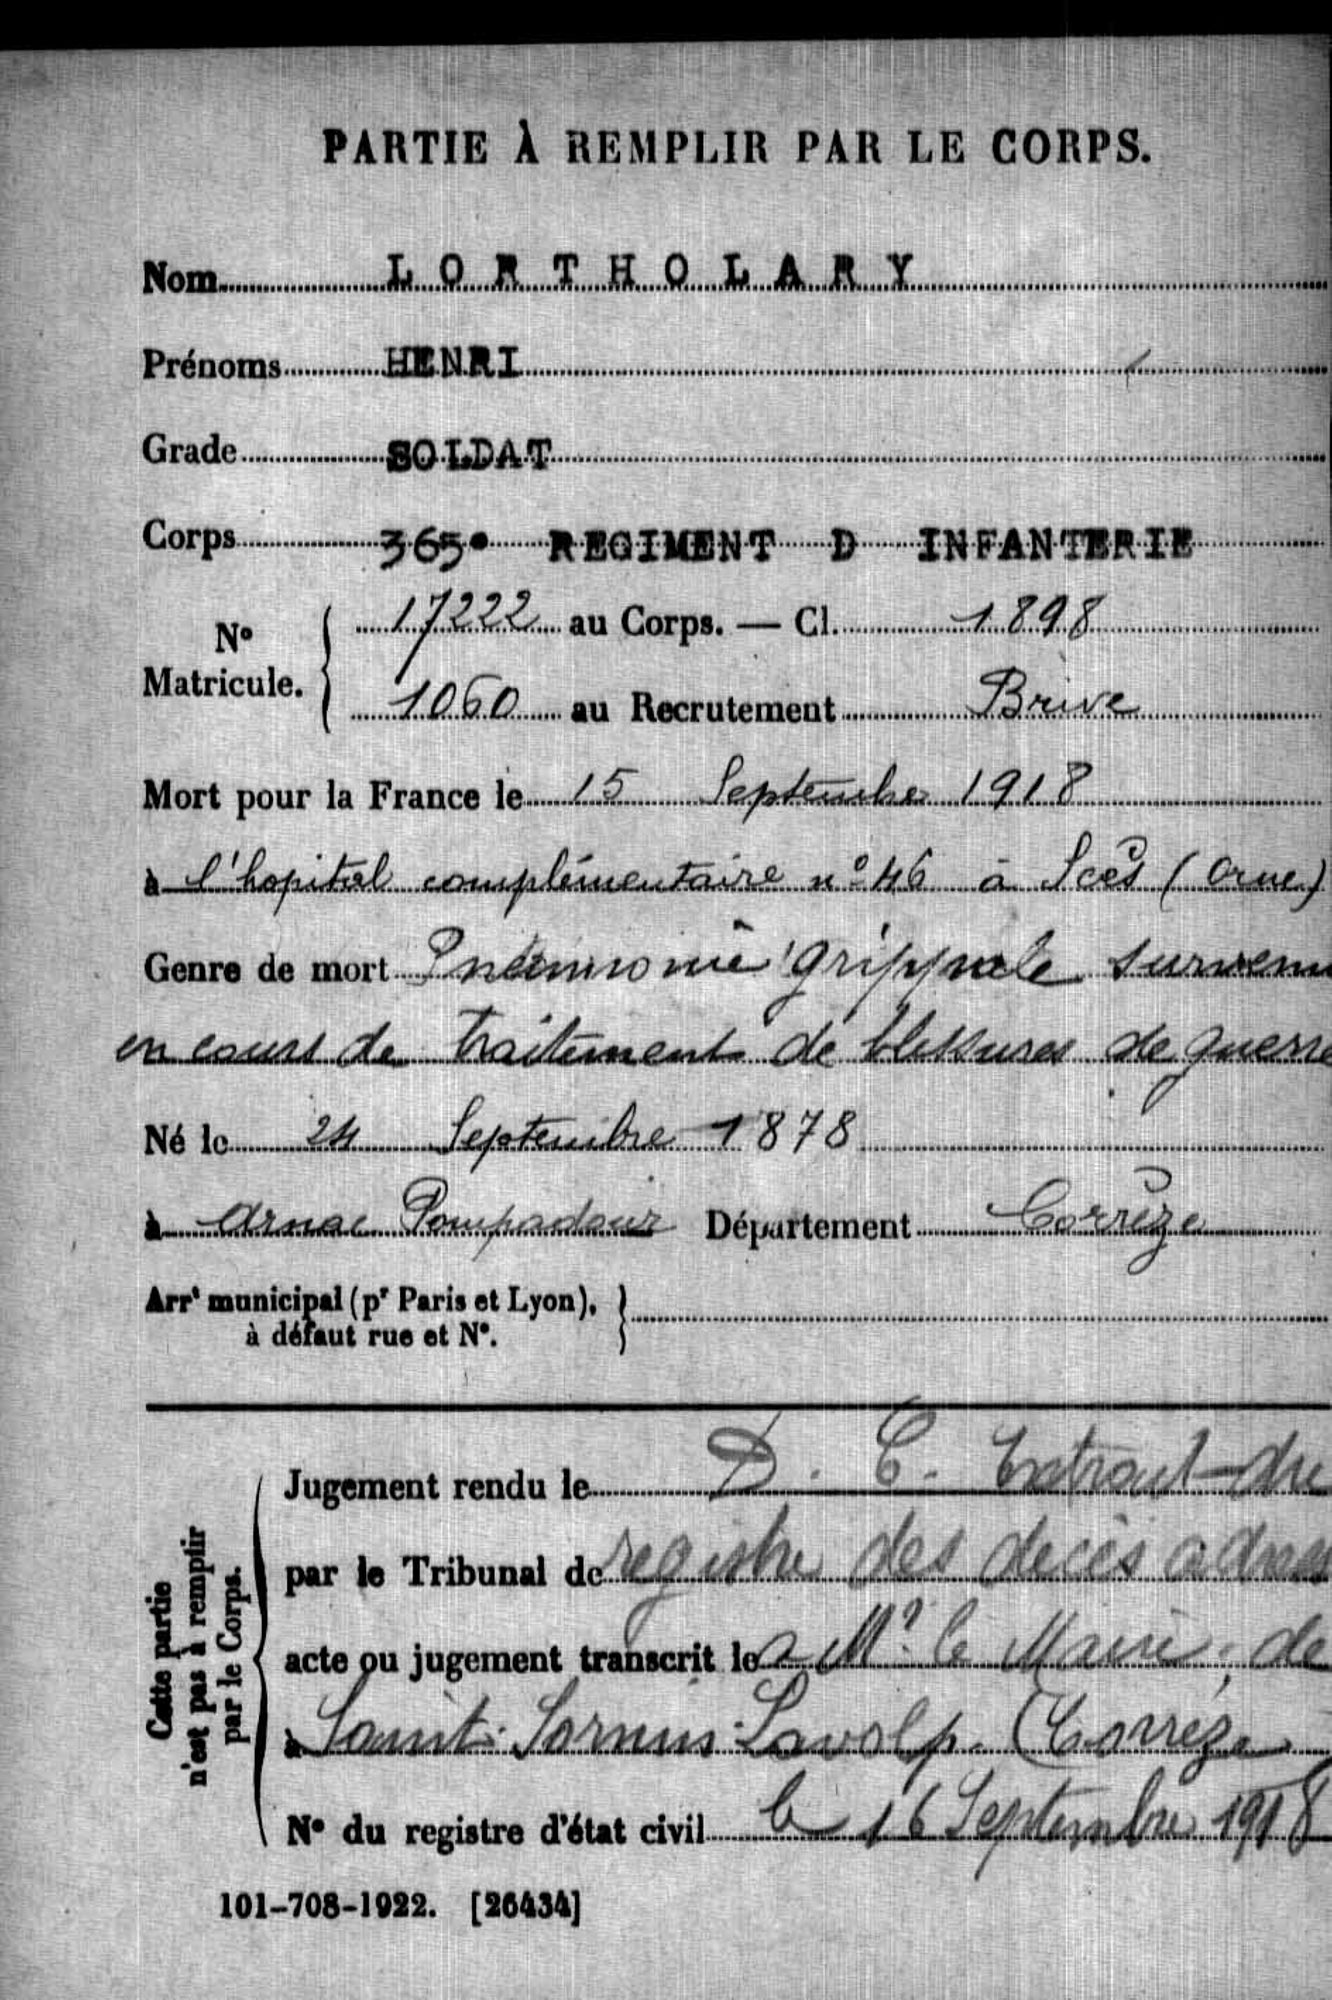 PARTIE À REMPLIR PAR LE CORPS.
Nom LORTHOLARY
Prénoms HENRI
Grade SOLDAT
Corps 365e REGIMENT D INFANTERIE
No Matricule. 17222 au Corps. — Cl. 1898
1060 au Recrutement Brive
Mort pour la France le 15 Septembre 1918
à l'hopital complémentaire no 46 à Sées (Orne)
Genre de mort Pneumonie grippale survenu
en cours de traitement de blessures de guerre
Né le 24 Septembre 1878
à Arnac Pompadour Département Corrèze
Arrt municipal (pr Paris et Lyon),
à défaut rue et No.
Cette partie
n'est pas à remplir
par le Corps.
Jugement rendu le D. C. Extrait du
par le Tribunal de registre des décès adress
acte ou jugement transcrit le a Mr le Maire de
à Saint Sornin Lavolp (Corrèze
No du registre d'état civil le 16 Septembre 1918
101-708-1922. [26434]